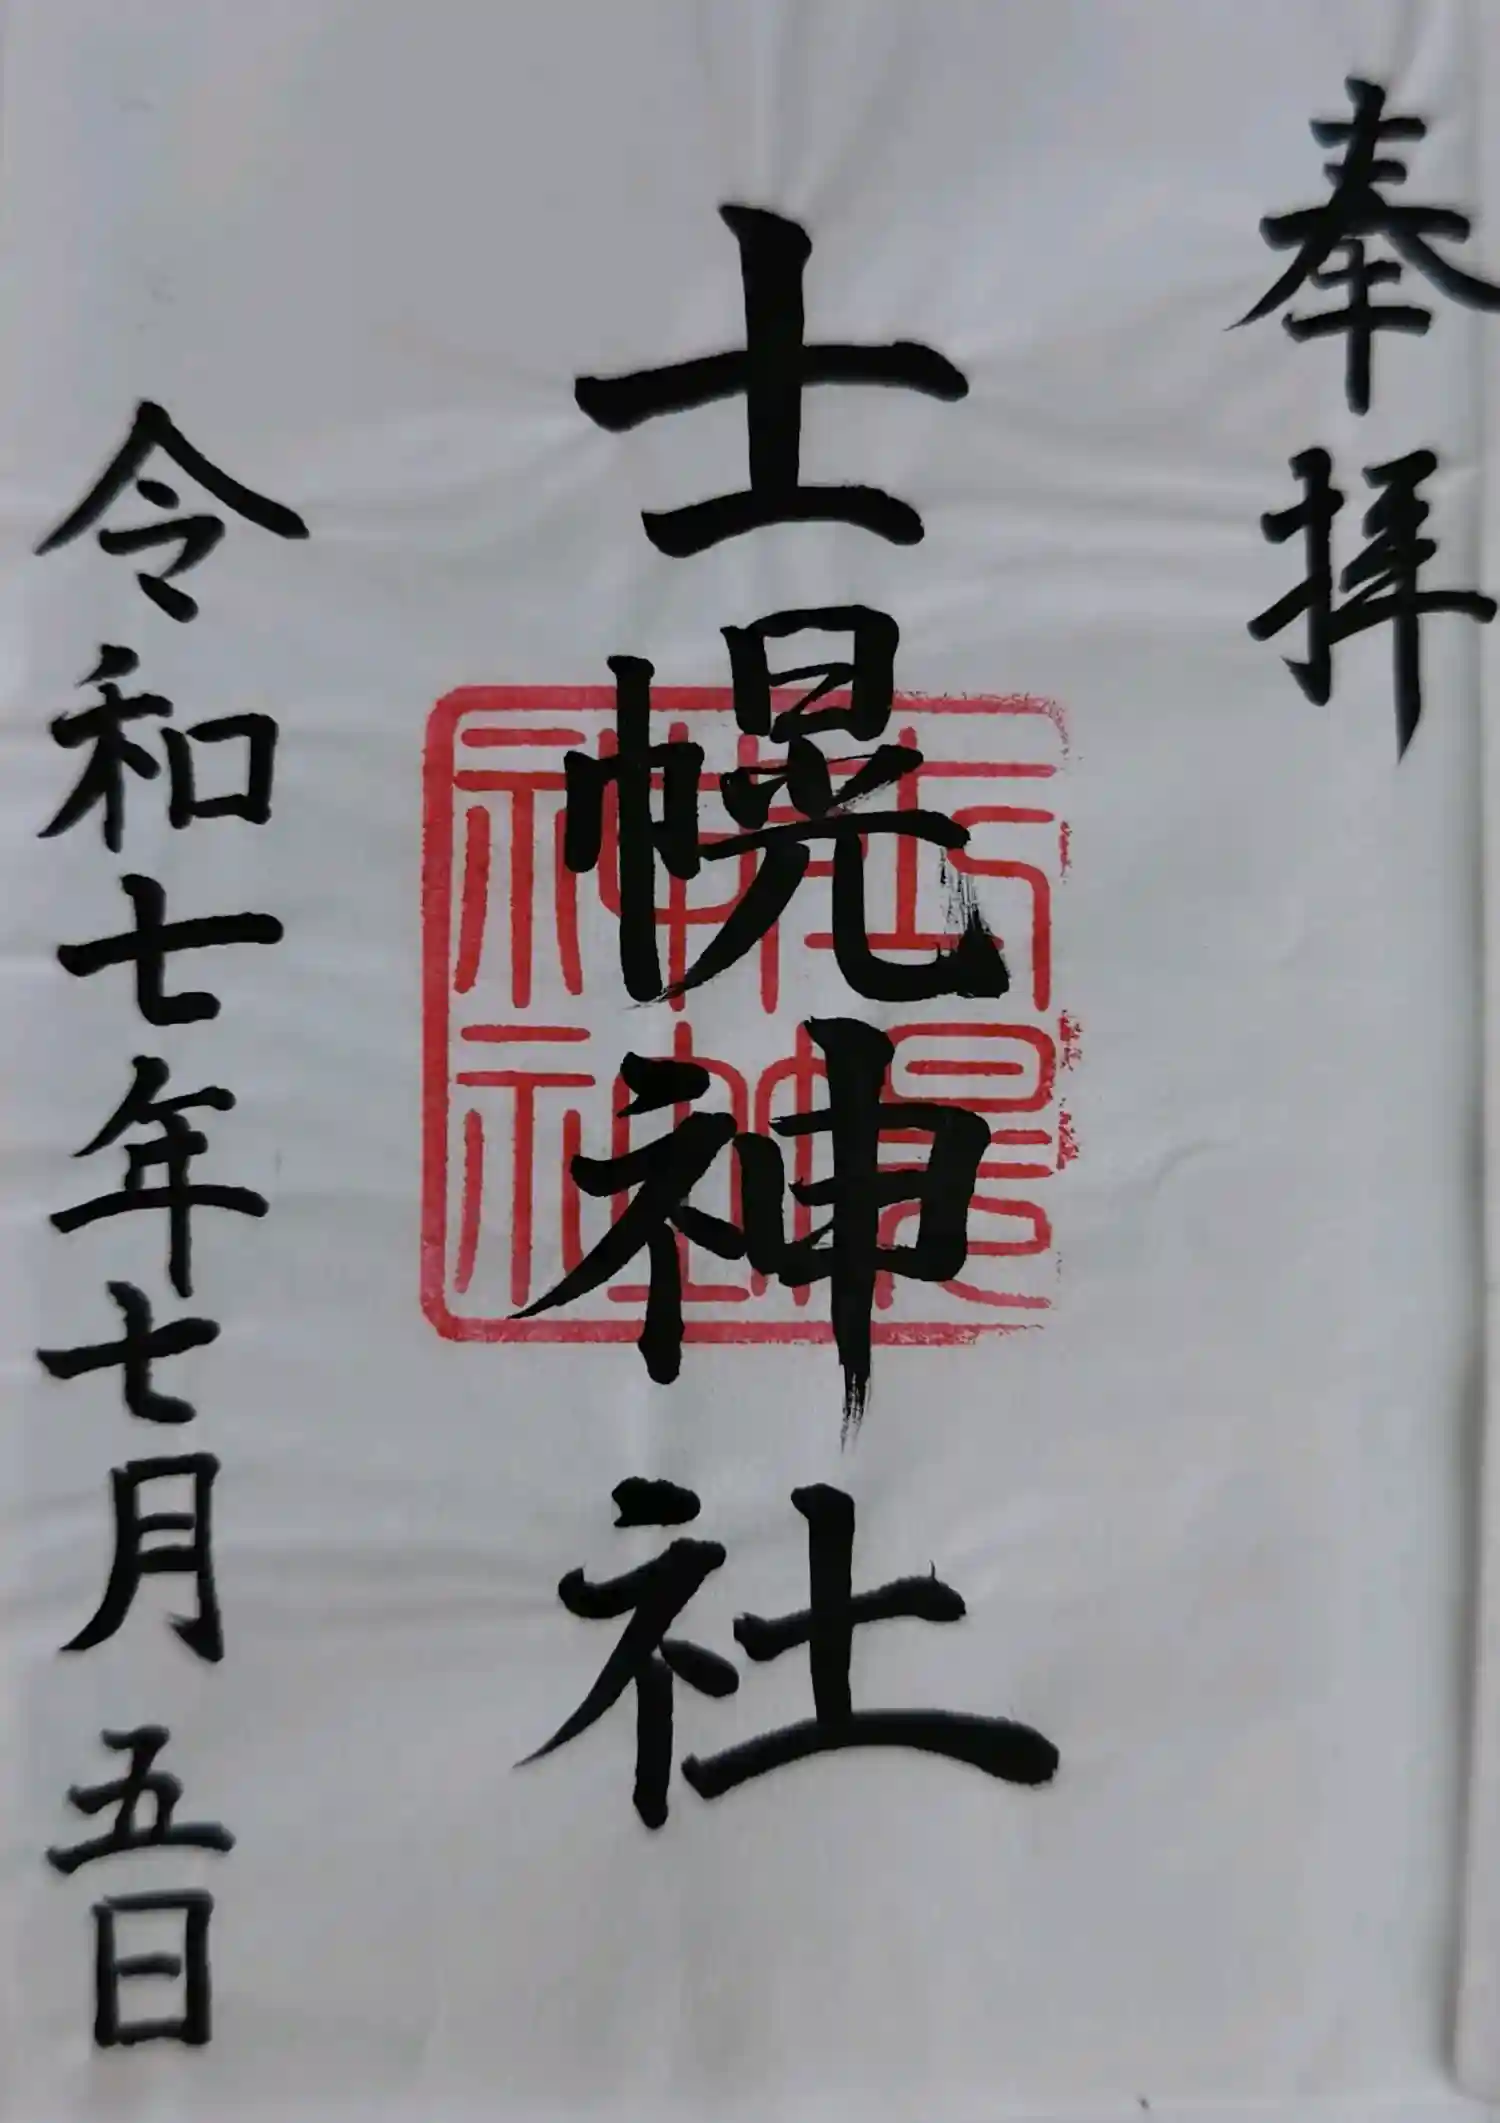 奉拝
士幌神社
士幌神社
令和七年七月五日